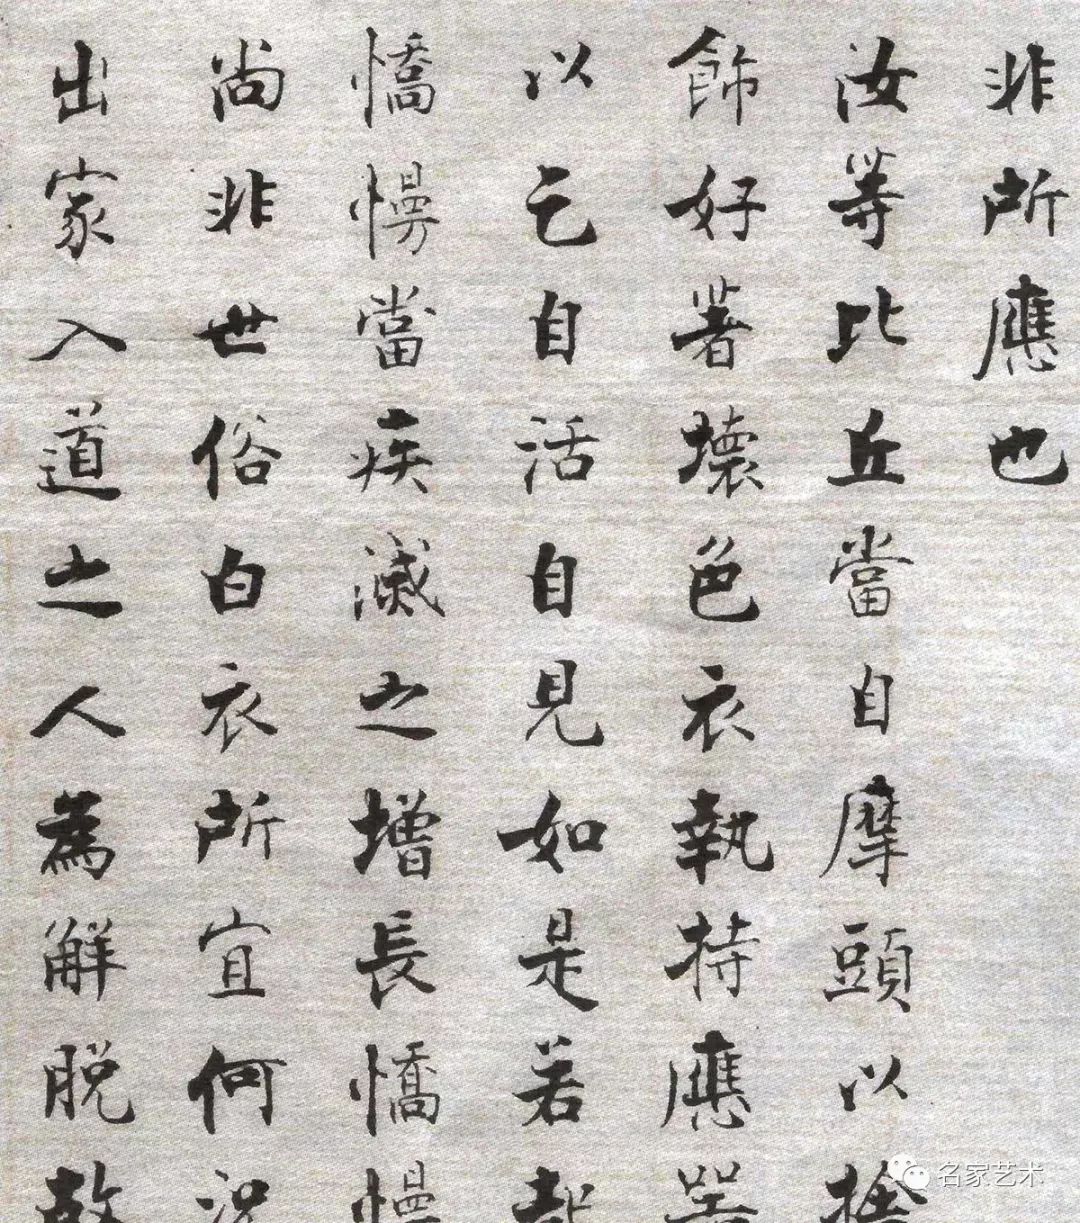 非所應也
汝等比丘當自摩頭以捨
飾好著壞色衣執持應器
以乞自活自見如是若起
憍慢當疾滅之增長憍慢
尚非世俗白衣所宜何況
出家入道之人為解脫故
名家艺术